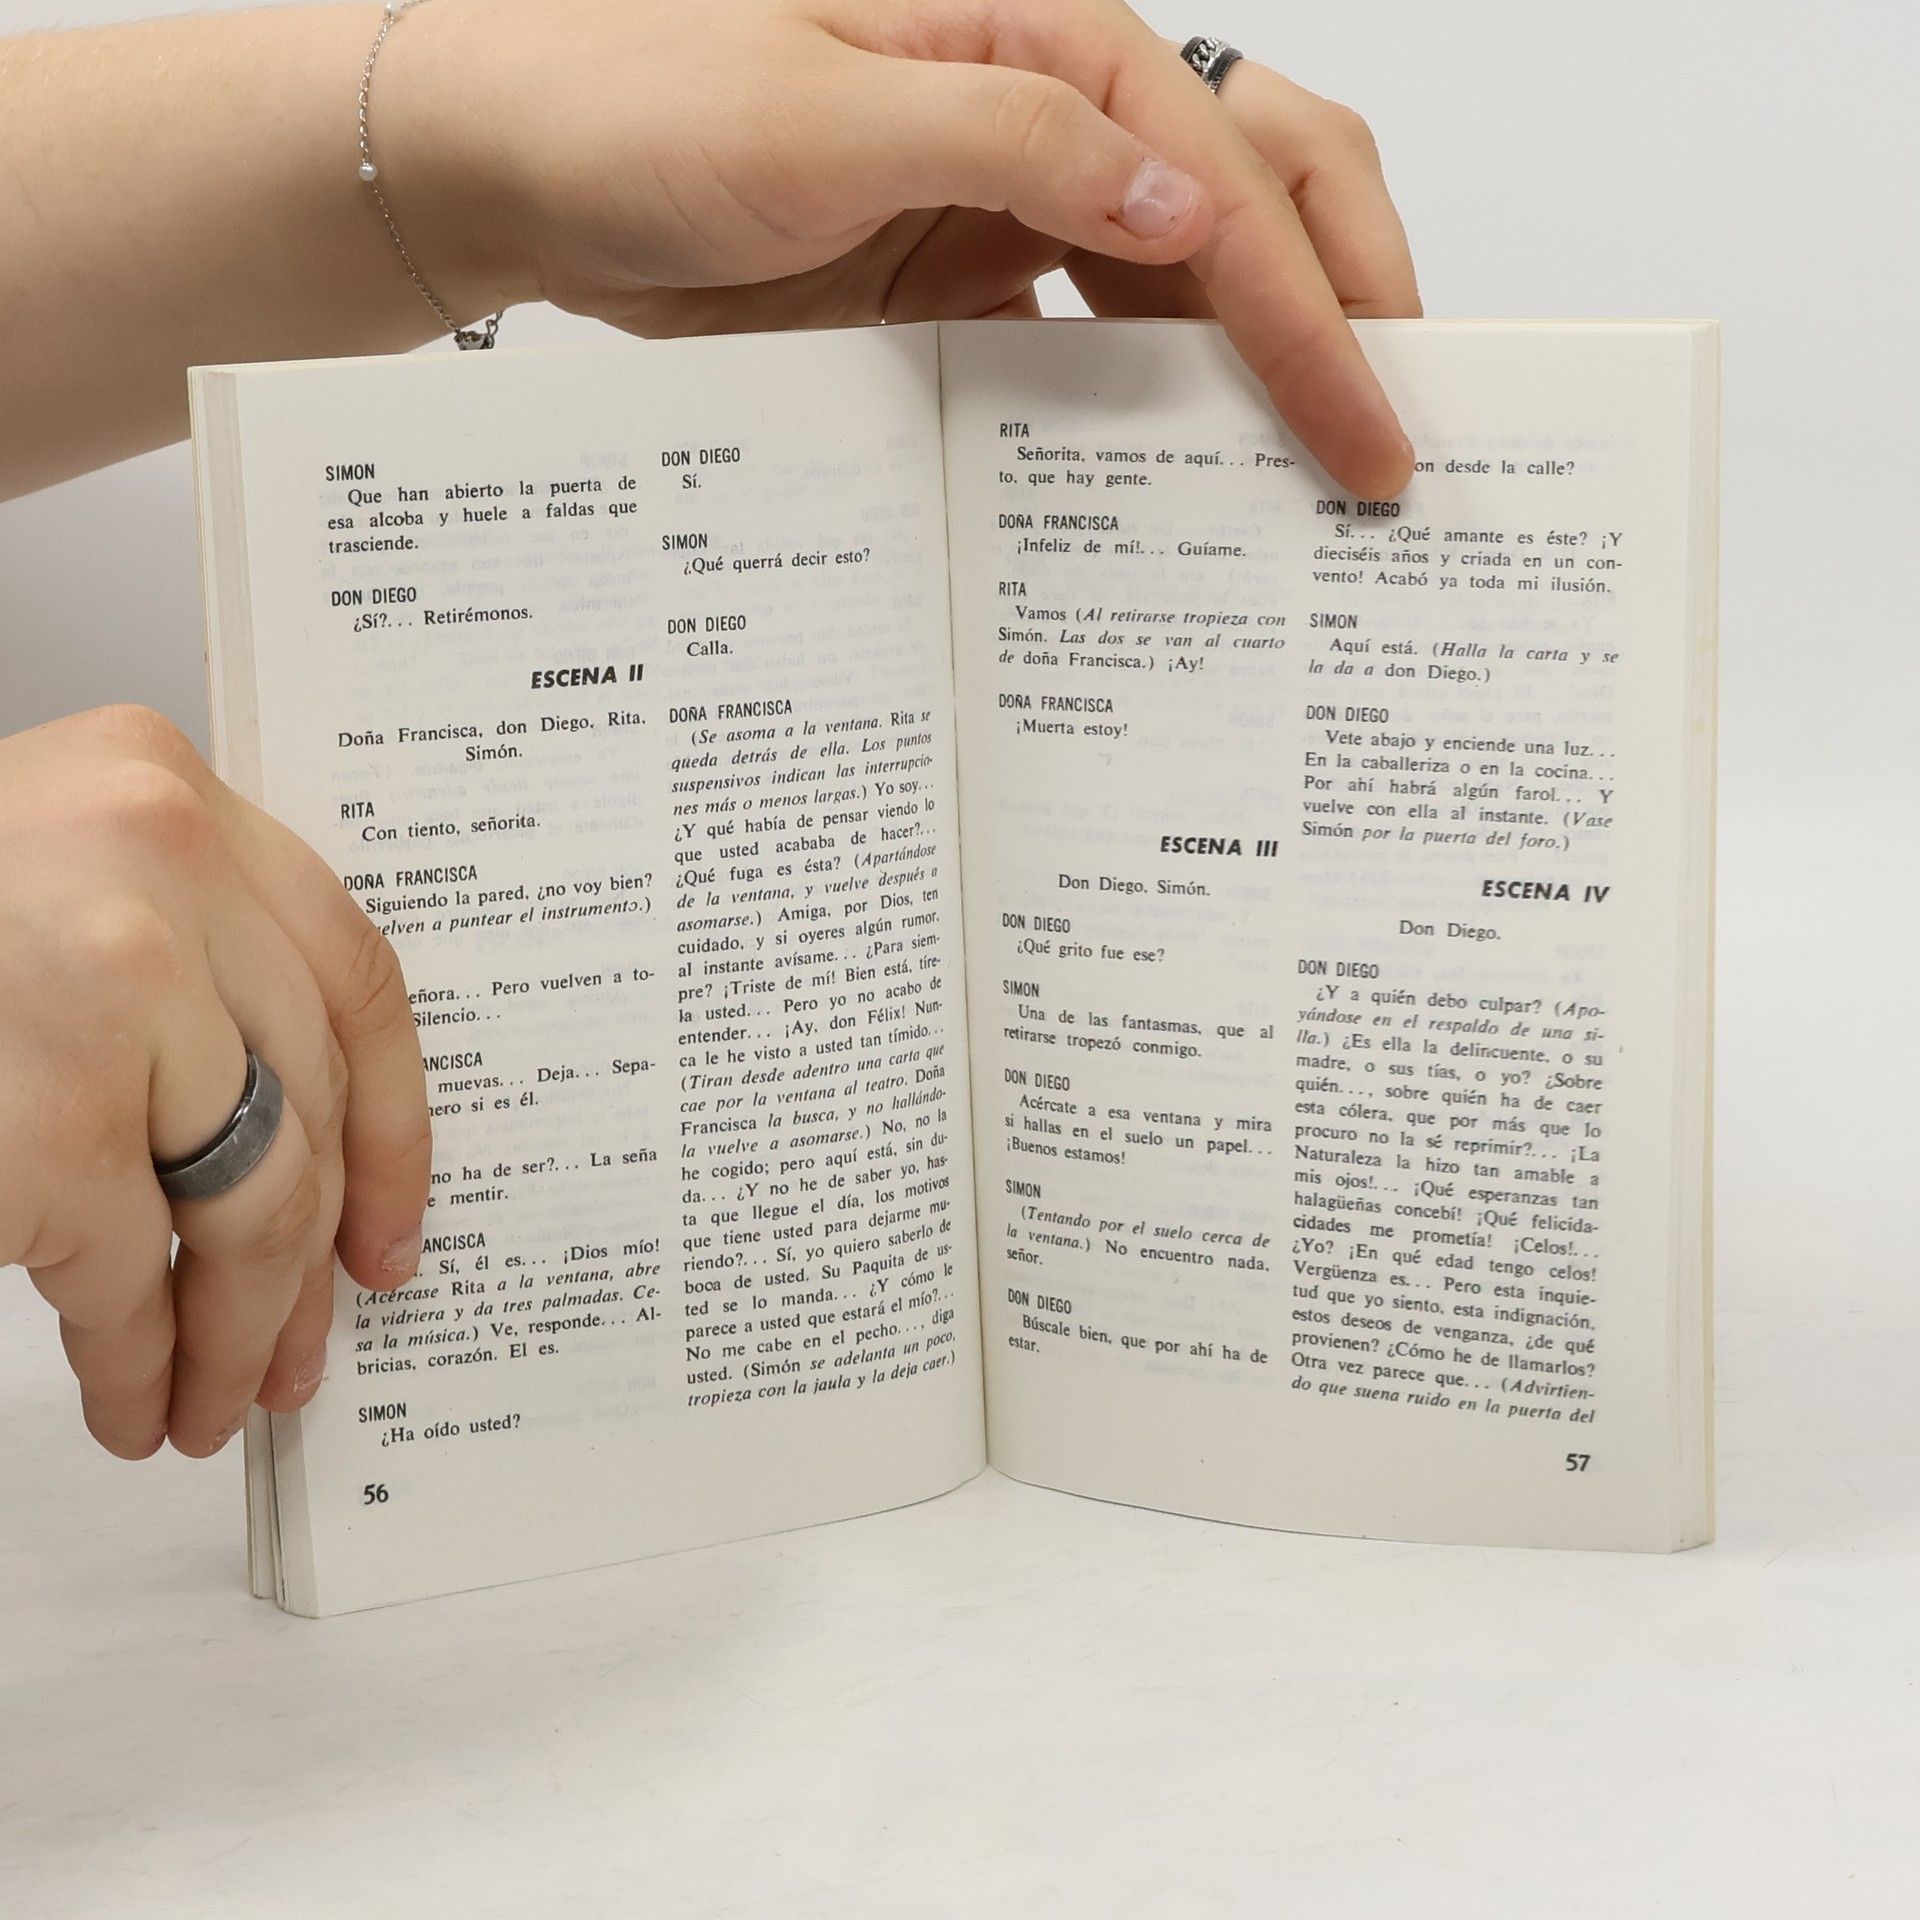 SIMON
Que han abierto la puerta de
esa alcoba y huele a faldas que
trasciende.
DON DIEGO
¿Sí?... Retirémonos.
ESCENA II
Doña Francisca, don Diego, Rita,
Simón.
RITA
Con tiento, señorita.
DOÑA FRANCISCA
Siguiendo la pared, ¿no voy bien?
a puntear el instrumento.)
Pero vuelven a to-
Silencio...
muevas... Deja... Sepa-
si es él.
no ha de ser?... La seña
mentir.
Sí, él es... ¡Dios mío!
(Acércase Rita a la ventana, abre
la vidriera y da tres palmadas. Ce-
sa la música.) Ve, responde... Al-
bricias, corazón. El es.
SIMON
¿Ha oído usted?
56
DON DIEGO
Sí.
SIMON
¿Qué querrá decir esto?
DON DIEGO
Calla.
DOÑA FRANCISCA
(Se asoma a la ventana. Rita se
queda detrás de ella. Los puntos
suspensivos indican las interrupcio-
nes más o menos largas.) Yo soy...
¿Y qué había de pensar viendo lo
que usted acababa de hacer?...
¿Qué fuga es ésta? (Apartándose
de la ventana, y vuelve después a
asomarse.) Amiga, por Dios, ten
cuidado, y si oyeres algún rumor,
al instante avísame... ¿Para siem-
pre? ¡Triste de mí! Bien está, tíre-
la usted... Pero yo no acabo de
entender... ¡Ay, don Félix! Nun-
ca le he visto a usted tan tímido...
(Tiran desde adentro una carta que
cae por la ventana al teatro. Doña
Francisca la busca, y no hallándo-
la vuelve a asomarse.) No, no la
he cogido; pero aquí está, sin du-
da... ¿Y no he de saber yo, has-
ta que llegue el día, los motivos
que tiene usted para dejarme mu-
riendo?... Sí, yo quiero saberlo de
boca de usted. Su Paquita de us-
ted se lo manda... ¿Y cómo le
parece a usted que estará el mío?...
No me cabe en el pecho..., diga
usted. (Simón se adelanta un poco,
tropieza con la jaula y la deja caer.)
RITA
Señorita, vamos de aquí... Pres-
to, que hay gente.
DOÑA FRANCISCA
¡Infeliz de mí!... Guíame.
RITA
Vamos (Al retirarse tropieza con
Simón. Las dos se van al cuarto
de doña Francisca.) ¡Ay!
DOÑA FRANCISCA
¡Muerta estoy!
ESCENA III
Don Diego, Simón.
DON DIEGO
¿Qué grito fue ese?
SIMON
Una de las fantasmas, que al
retirarse tropezó conmigo.
DON DIEGO
Acércate a esa ventana y mira
si hallas en el suelo un papel...
¡Buenos estamos!
SIMON
(Tentando por el suelo cerca de
la ventana.) No encuentro nada,
señor.
DON DIEGO
Búscale bien, que por ahí ha de
estar.
desde la calle?
DON DIEGO
Sí... ¿Qué amante es éste? ¡Y
dieciséis años y criada en un con-
vento! Acabó ya toda mi ilusión.
SIMON
Aquí está. (Halla la carta y se
la da a don Diego.)
DON DIEGO
Vete abajo y enciende una luz...
En la caballeriza o en la cocina...
Por ahí habrá algún farol... Y
vuelve con ella al instante. (Vase
Simón por la puerta del foro.)
ESCENA IV
Don Diego.
DON DIEGO
¿Y a quién debo culpar? (Apo-
yándose en el respaldo de una si-
lla.) ¿Es ella la delincuente, o su
madre, o sus tías, o yo? ¿Sobre
quién..., sobre quién ha de caer
esta cólera, que por más que lo
procuro no la sé reprimir?... ¡La
Naturaleza la hizo tan amable a
mis ojos!... ¡Qué esperanzas tan
halagüeñas concebí! ¡Qué felicida-
cidades me prometía! ¡Celos!...
¿Yo? ¡En qué edad tengo celos!
Vergüenza es... Pero esta inquie-
tud que yo siento, esta indignación,
estos deseos de venganza, ¿de qué
provienen? ¿Cómo he de llamarlos?
Otra vez parece que... (Advirtien-
do que suena ruido en la puerta del
57